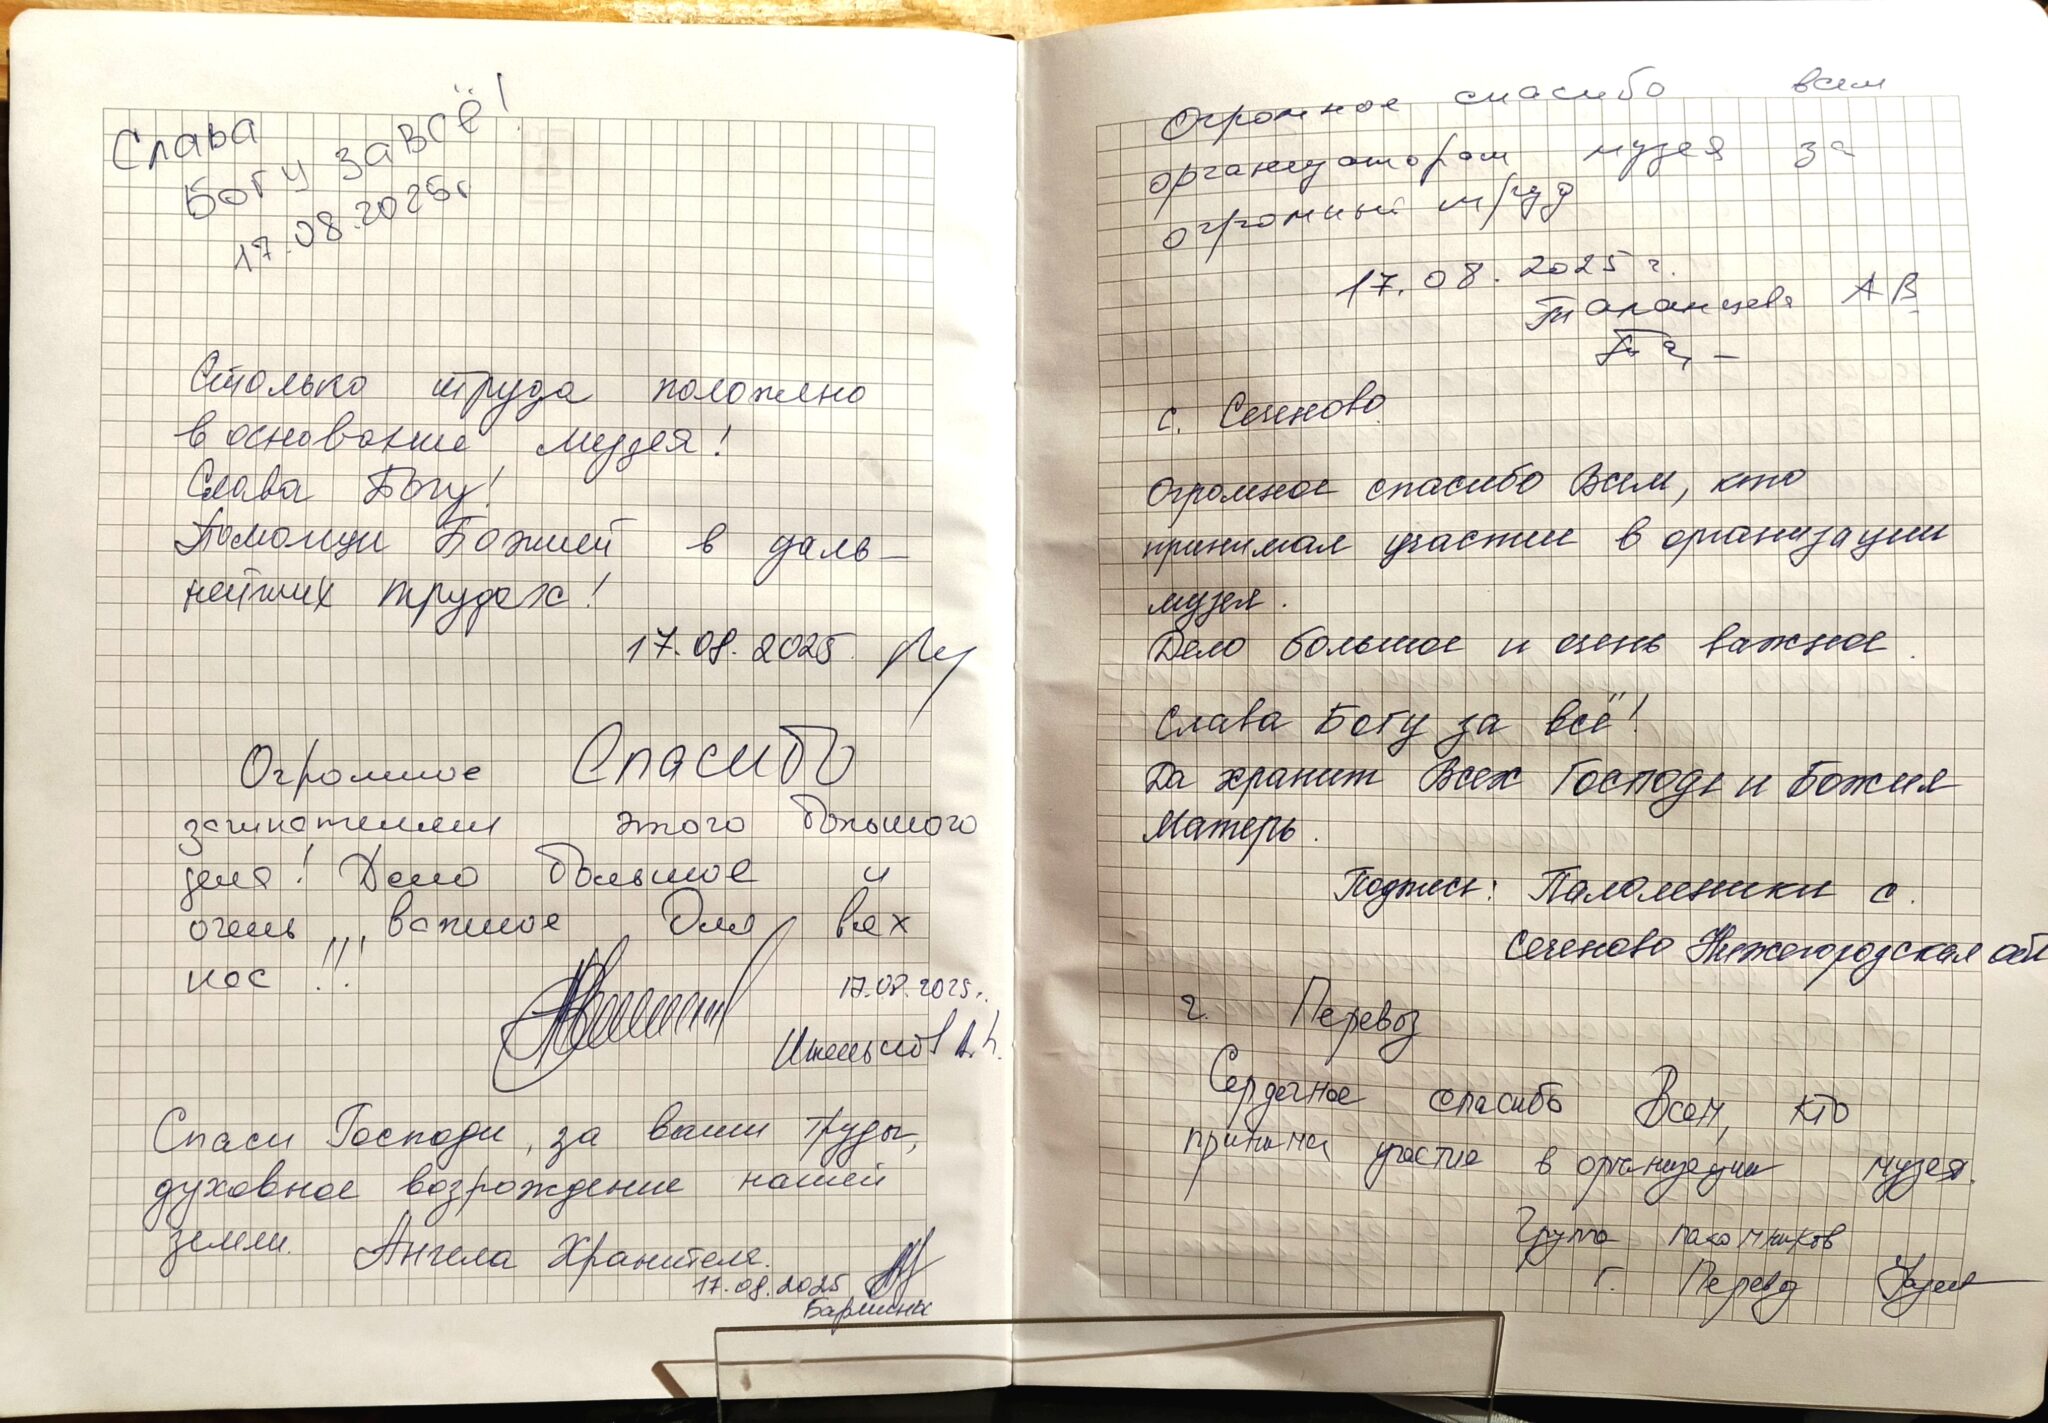 Слава
Богу за всё!
17.08.2025г
Столько труда положено
в основание музея!
Слава Богу!
Помощи Божией в даль-
нейших трудах!
17.08.2025.
Огромное Спасибо
зачинателям этого большого
дела! Дело большое и
очень важное для всех
нас!!!
17.08.2025г.
Спаси Господи, за ваши труды,
духовное возрождение нашей
земли. Ангела Хранителя.
17.08.2025
Огромное спасибо всем
организаторам музея за
огромный труд
17.08.2025 г.
Таланцева АВ
с. Сеченово.
Огромное спасибо Всем, кто
принимал участие в организации
музея.
Дело большое и очень важное.
Слава Богу за всё!
Да хранит Всех Господь и Божия
Матерь.
Подпись: Паломники с.
Сеченово Нижегородская обл
г. Перевоз
Сердечное спасибо Всем, кто
принимал участие в организации музея.
Группа паломников
г. Перевоз